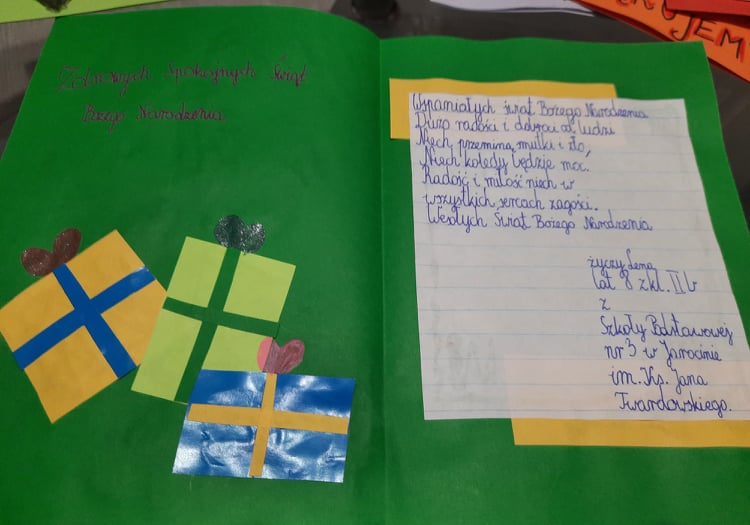 Zdrowych Spokojnych Świąt
Bożego Narodzenia
Wspaniałych świąt Bożego Narodzenia
Dużo radości i dobroci od ludzi
Niech przeminą smutki i zło,
Niech kolędy będzie moc.
Radość i miłość niech w
wszystkich sercach zagości.
Wesołych Świąt Bożego Narodzenia
życzy Lena
lat 8 z kl. II b
z
Szkoły Podstawowej
nr 3 w Jarocinie
im. Ks. Jana
Twardowskiego.